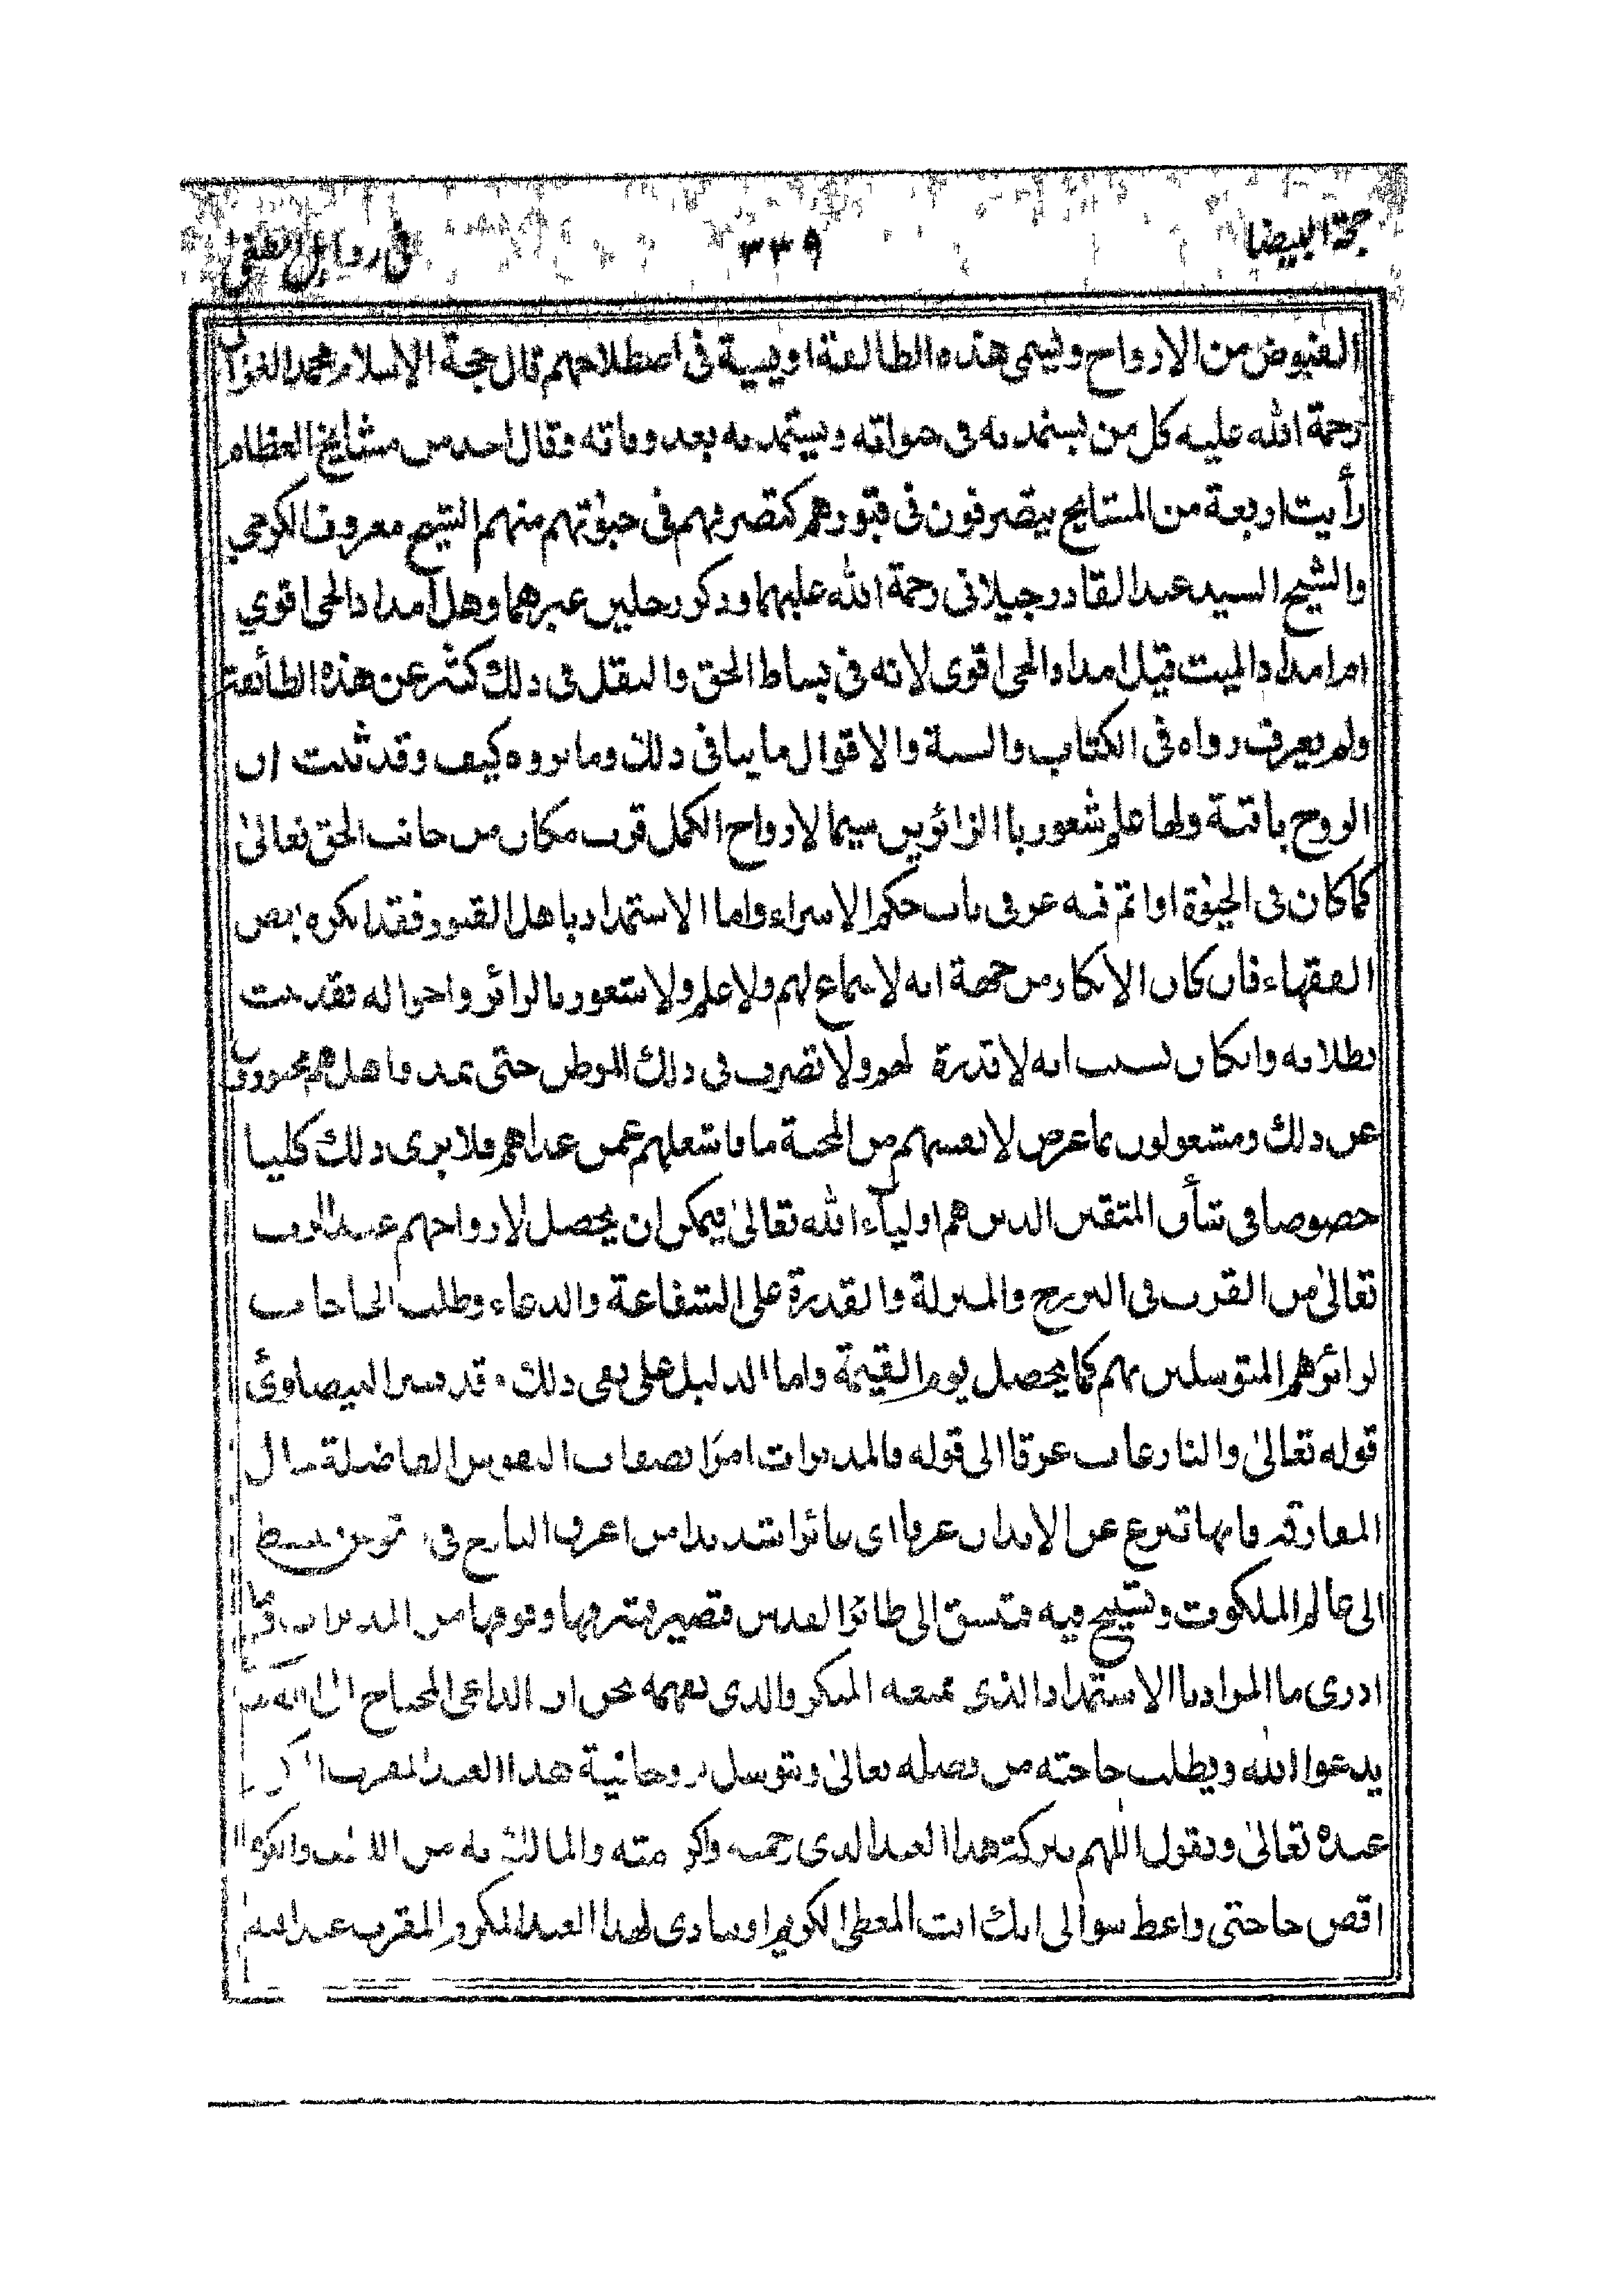 حجة البيضا ٣٣٩ فى رد
الفيوض من الارواح ويسمى هذه الطائفة اويسية فى اصطلاحهم قال حجة الاسلام محمد الغزالى
رحمة الله عليه كل من يستمد به فى حيواته ويستمد به بعد وفاته وقال احد من مشايخ العظام
رأيت اربعة من المشايخ يتصرفون فى قبورهم كتصرفهم فى حيوٰتهم منهم الشيخ معروف الكرخي
والشيخ السيد عبد القادر جيلانى رحمة الله عليهما وذكر رجلين غيرهما وهل امداد الحى اقوي
ام امداد الميت قيل امداد الحى اقوى لانه فى بساط الحق والنقل فى ذلك كثير عن هذه الطائفة
ولم يعرف رواه فى الكتاب والسنة والاقوال ما ينافى ذلك وما يروه كيف وقد ثبت ان
الروح باقية ولها علم شعور با الزائرين سيما لارواح الكمل قرب مكان من جانب الحق تعالىٰ
كما كان فى الحيوٰة او اتم فيه عر فى باب حكم الاسراء واما الاستمداد باهل القبور فقد انكره بعض
الفقهاء فان كان الانكار من جهة انه لا سماع لهم ولا علم ولا شعور بالزائر واحواله فقد ثبت
بطلانه وانكان بسبب انه لا قدرة لهم ولا تصرف فى ذلك الموطن حتى يمدوا هل هم محبوسون
عن ذلك ومشغولون بما عرض لانفسهم من المحنة ما ما شغلهم عمن عداهم فلا يرى ذلك كليا
خصوصا فى شأن المتقين الذين هم اولياء الله تعالىٰ فيمكن ان يحصل لارواحهم عند الرب
تعالىٰ من القرب فى البرزخ والمنزلة والقدرة على الشفاعة والدعاء وطلب الحاجات
لزائرهم المتوسلين بهم كما يحصل يوم القيٰمة واما الدليل على نفى ذلك ٠ قد فسر البيضاوىُّ
قوله تعالىٰ والنازعات غرقا الى قوله فالمدبرات امرًا بصفات النفوس الفاضلة حال
المفارقه فانها تنزع عن الابدان غرقا اى نازعا شديدا من اغرق النازع فى القوس فتنشط
الى عالم الملكوت وتسبح فيه فتسبق الى حظائر القدس فتصير لشرفها وقوتها من المدبرات
ادرى ما المراد با الاستمداد الذى يمنعه المنكر والذى نفهمه نحن ان الداعى المحتاج الى الله
يدعوا الله ويطلب حاجته من فضله تعالىٰ ويتوسل بروحانية هذا العبد المقرب
عبده تعالىٰ ويقول اللهم ببركة هذا العبد الذى رحمته واكرمته والمالك به من
اقض حاجتى واعط سوالى انك انت المعطى الكريم او ينادى لهذا العبد المكرم المقرب عند الله